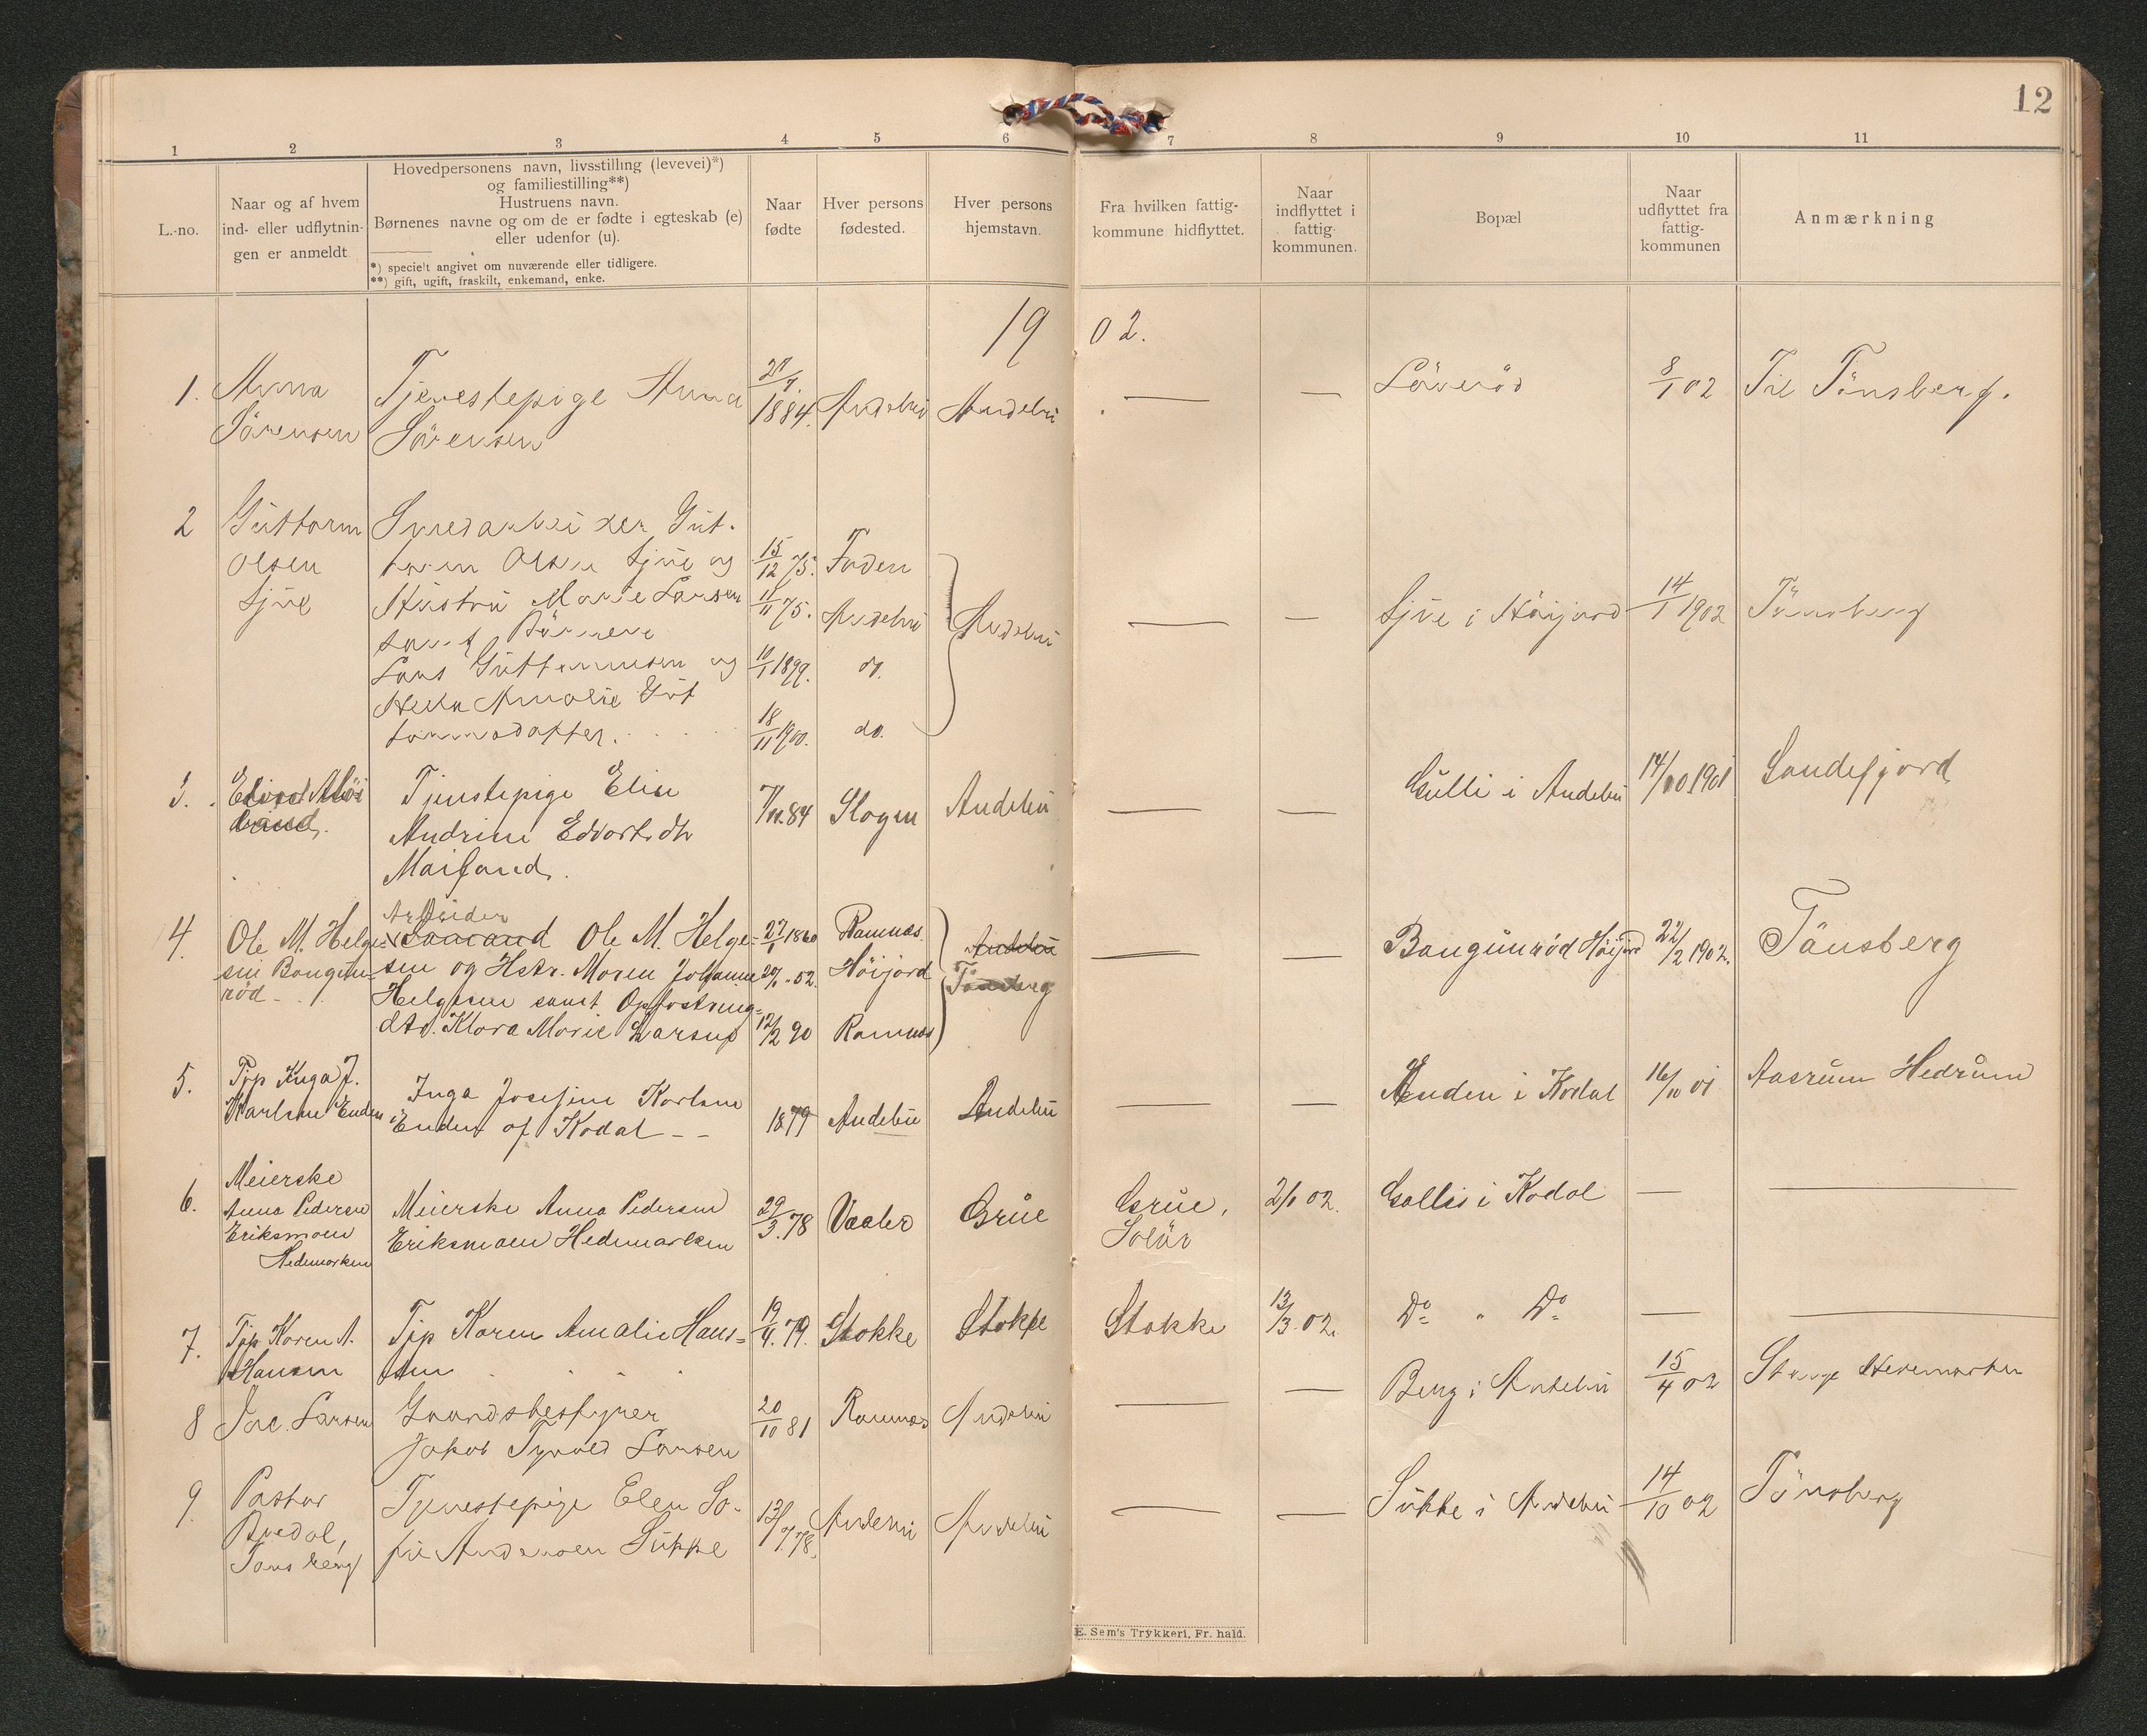 12
1 2 3 4 5 6 7 8 9 10 11
L.-no.
Naar og af hvem
ind- eller udflytnin-
gen er anmeldt
Hovedpersonens navn, livsstilling (levevei)*)
og familiestilling**)
Hustruens navn.
Børnenes navne og om de er fødte i egteskab (e)
eller udenfor (u).
*) specielt angivet om nuværende eller tidligere.
**) gift, ugift, fraskilt, enkemand, enke.
Naar
fødte
Hver persons
fødested.
Hver persons
hjemstavn.
Fra hvilken fattig-
kommune hidflyttet.
Naar
indflyttet i
fattig
kommunen.
Bopæl
Naar
udflyttet fra
fattig-
kommunen
Anmærkning
19 02.
1. Anna
Sörensen
Tjenestepige Anna
Sörensen
1884. Andebu Andebu — — 8/1 02 Til Tönsberg.
2 Guttorm
Olsen
Sjue
Smedarbeider Gut-
torm Olsen Sjue og
Hustru Marie Larsen
samt Börnene
Lars Guttormsen og
Amalie Gut
tormsdatter.
15/12 75. Foden
11/11 75. Andebu
10/1 1899. do.
18/11 1900. do.
Andebu — — Sjue i Höijord 14/1 1902 Tönsberg
3.
Tjenstepige Elise
Andrine Edvartsdtr
Maisund.
84 Slagen Andebu — — Gulli i Andebu 1901 Sandefjord
4. Ole M. Helge-
sen Bangun-
röd
Arbeider
Ole M. Helge-
sen og Hstr. Maren Johanne
Helgesen samt Opfostrings-
dtr. Klara Marie Larsen
27/1 1860 Ramnæs
52. Höijord
12/2 90 Ramnæs
Andebu
Tönsberg
— — Bangunröd Höijord 22/2 1902. Tönsberg
5. Tjp Inga J.
Karlsen Enden
Inga Josefine Karlsen
Enden af Kodal - -
1879 Andebu Andebu — — Enden i Kodal 16/10 01 Aasrum Hedrum
6. Meierske
Anna Pedersen
Eriksmoen
Hedemarken
Meierske Anna Pedersen
Eriksmoen Hedemarken
29/3. 78 Vaaler Grue Grue,
Solör
2/1 02. Gallis i Kodal — —
7. Tjp Karen A.
Hansen
Tjp Karen Amalie Han-
sen
19/4. 79. Stokke Stokke Stokke 13/3. 02. Do " Do — —
8 Jac. Larsen
Gaardsbestyrer
Jakob Larsen
20/10 81 Ramnæs Andebu — — Berg i Andebu 15/4 02 Stange Hedemarken
9. Pastor
Bredal,
Tönsberg
Tjenestepige Elen So-
fie Andersen Sukke
13/7 78. Andebu Andebu — — Sukke i Andebu 14/10 02 Tönsberg
E. Sem's Trykkeri, Fr. hald.